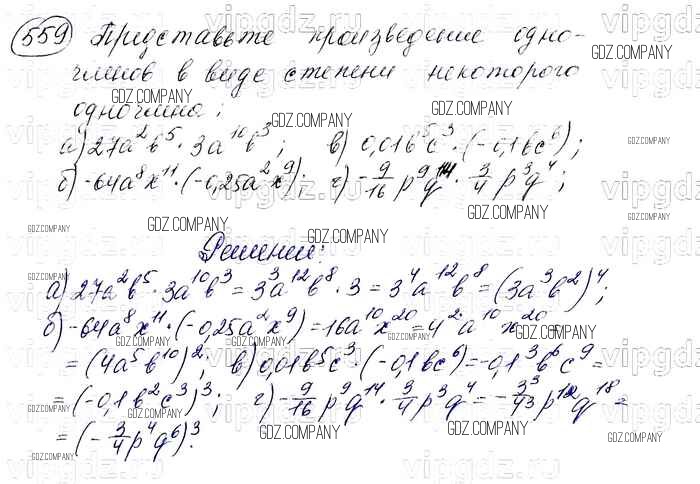 559 Представьте произведение одно-
членов в виде степени некоторого
одночлена:
а) 27a²b⁵ · 3a¹⁰b³; в) 0,01b⁵c³ · (-0,1bc⁶);
б) -64a⁸x¹¹ · (-0,25a²x⁹); г) -9/16 p⁹q¹⁴ · 3/4 p³q⁴;
Решение:
а) 27a²b⁵ · 3a¹⁰b³ = 3³a¹²b⁸ · 3 = 3⁴a¹²b⁸ = (3a³b²)⁴;
б) -64a⁸x¹¹ · (-0,25a²x⁹) = 16a¹⁰x²⁰ = 4²a¹⁰x²⁰ =
= (4a⁵b¹⁰)²; в) 0,01b⁵c³ · (-0,1bc⁶) = -0,1³b⁶c⁹ =
= (-0,1b²c³)³; г) -9/16 p⁹q¹⁴ · 3/4 p³q⁴ = -3³/4³ p¹²q¹⁸ =
= (-3/4 p⁴q⁶)³.
GDZ.COMPANY
vipgdz.ru